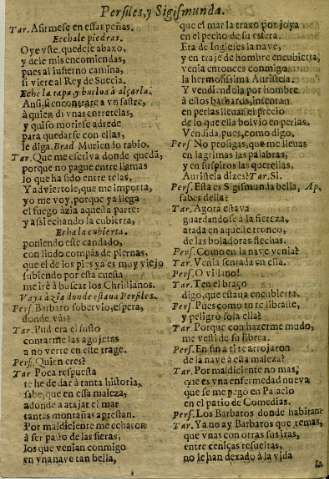 Persiles, y Sigismunda.
Tar. Asirmese en estas peñas.
Echale piedras.
Oye vste, quedese abaxo,
y dexe mis encomiendas,
pues al infierno camina,
si viere al Rey de Suecia.
Eche la tapa y buelua à alçarla.
Ansi, si encontrare a vn sastre,
à quien di vnas entretelas,
y quiso morirse adrede
para quedarse con ellas,
le diga. Brad. Muriendo rabio.
Tar. Que me escriua donde queda,
porque no pague entre llamas
lo que ha sido entre telas.
Y aduiertole, que me importa,
yo me voy, porque ya llega
el fuego àzia aquella parte:
y assi echando la cubierta,
Echa la cubierta.
poniendo este candado,
con lindo compas de piernas,
que el de los pies ya es muy viejo
subiendo por esta cuesta
me irè à buscar los Christianos.
Vaya àzia donde està vn Persiles.
Pers. Barbaro soberuio, espera,
donde vàs?
Tar. Pudiera el susto
contarme las agujetas
a no verte en este trage.
Pers. Quien eres?
Tar. Poca respuesta
te he de dar à tanta historia,
sabe, que en esta maleza,
adonde a atajar el mar
tantas montañas agrestan.
Por maldiciente me echaron
à ser pasto de las fieras,
los que venian conmigo
en vna naue tan bella,
que el mar la traxo por joya
en el pecho de su esfera.
Era de Ingleses la naue,
y en traje de hombre encubierta,
venia entonces conmigo
la hermosissima Auristela.
Y vendiendola por hombre
à estos barbaros, intentan
en perlas lleuar el precio
de lo que ella boluio en perlas.
Vendida, pues, como digo,
Pers. No prosigas, que me lleuas
en lagrimas las palabras,
y en suspiros las querellas.
Auristela dizes? Tar. Si.
Pers. Esta es Sigismunda bella, Ap.
sabes della?
Tar. Agora estaua
guardandose à la fiereza,
atada en aquelle tronco,
de las boladoras flechas.
Pers. Como en la naue venia?
Tar. Venia sentada en ella.
Pers. O villano!
Tar. Ten el braço
digo, que estaua encubierta.
Pers. Pues como tu te libraste,
y peligrò sola ella?
Tar. Porque con hazerme mudo,
me vestì de su librea.
Pers. En fin a ti te arrojaron
de la naue à essa maleza?
Tar. Por maldiciente no mas,
que es vna enfermedad nueua
que se me pegò en Palacio
en el patio de Comedias.
Pers. Los Barbaros donde habitan?
Tar. Ya no ay Barbaros que temas,
que vnas con otras sus iras,
entre cenizas resueltas,
no le han dexado à la vida